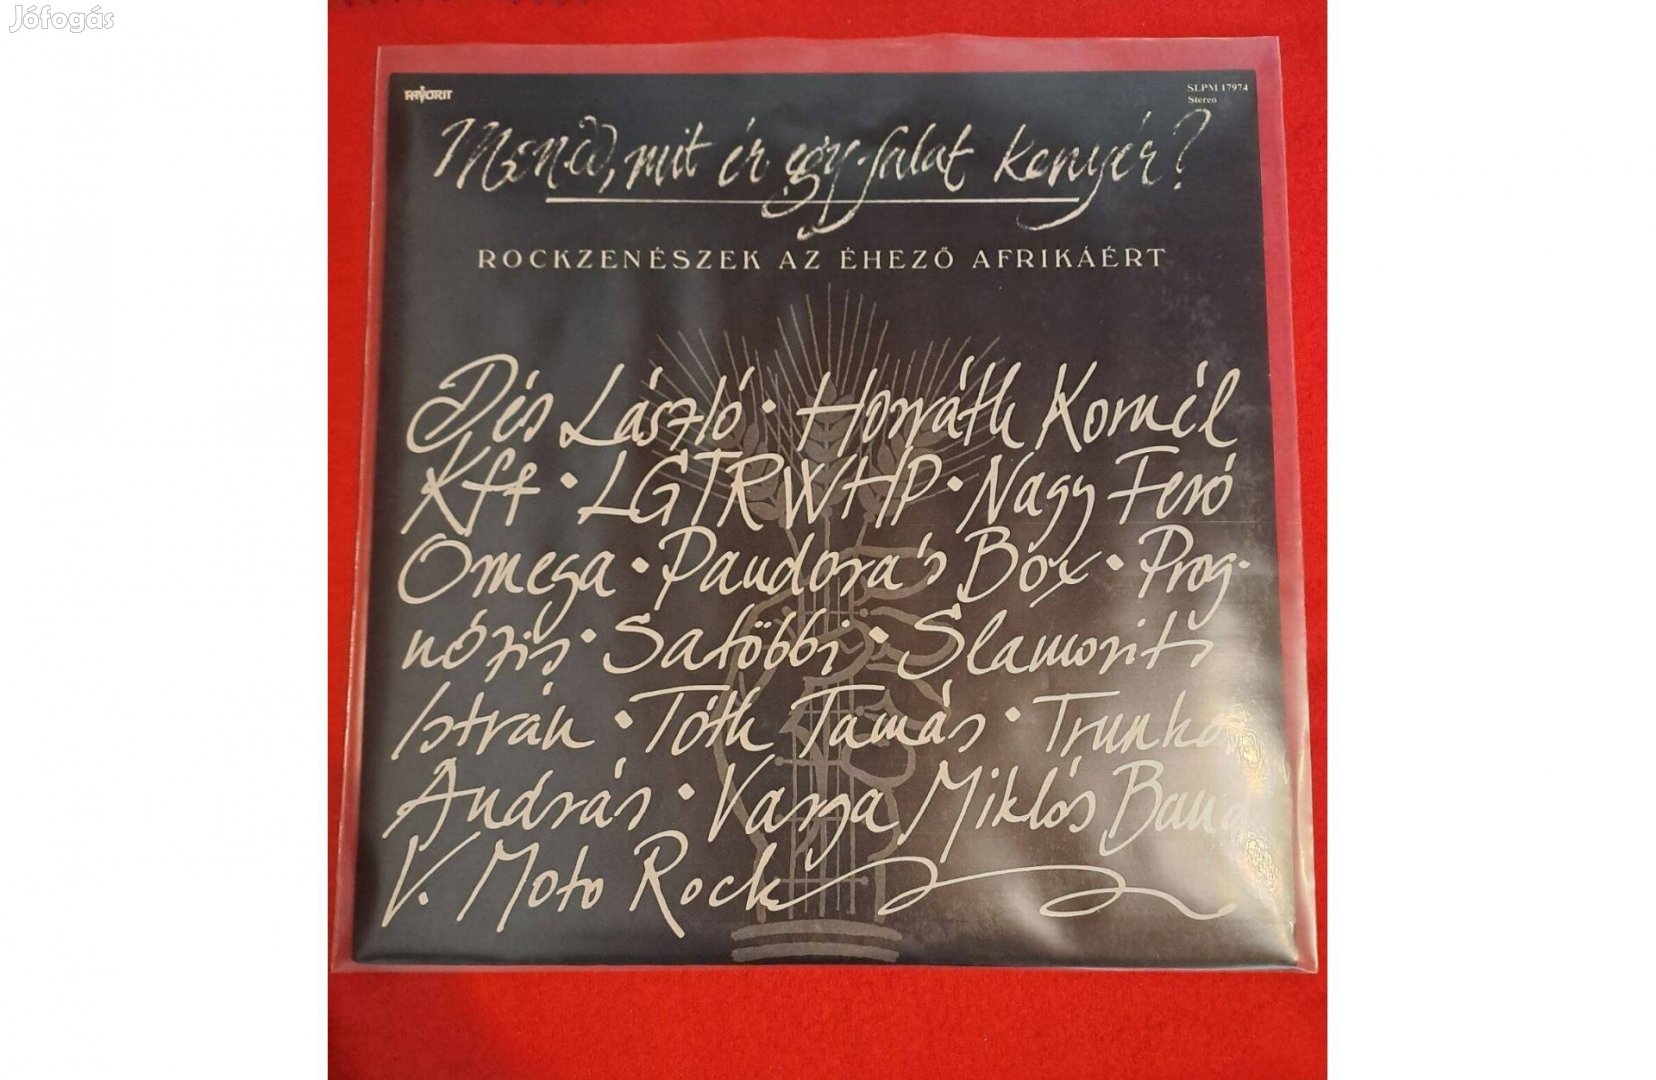 Jófogás
FAVORIT
SLPM 17974
Stereo
Mondd, mit ér egy falat kenyér?
ROCKZENÉSZEK AZ ÉHEZŐ AFRIKÁÉRT
Dés László • Horváth Kornél
Kft • LGTRWHP • Nagy Feró
Omega • Pandora's Box • Prog-
nózis • Satöbbi • Slamovits
István • Tóth Tamás • Trunkos
András • Varga Miklós Band
V. Moto Rock